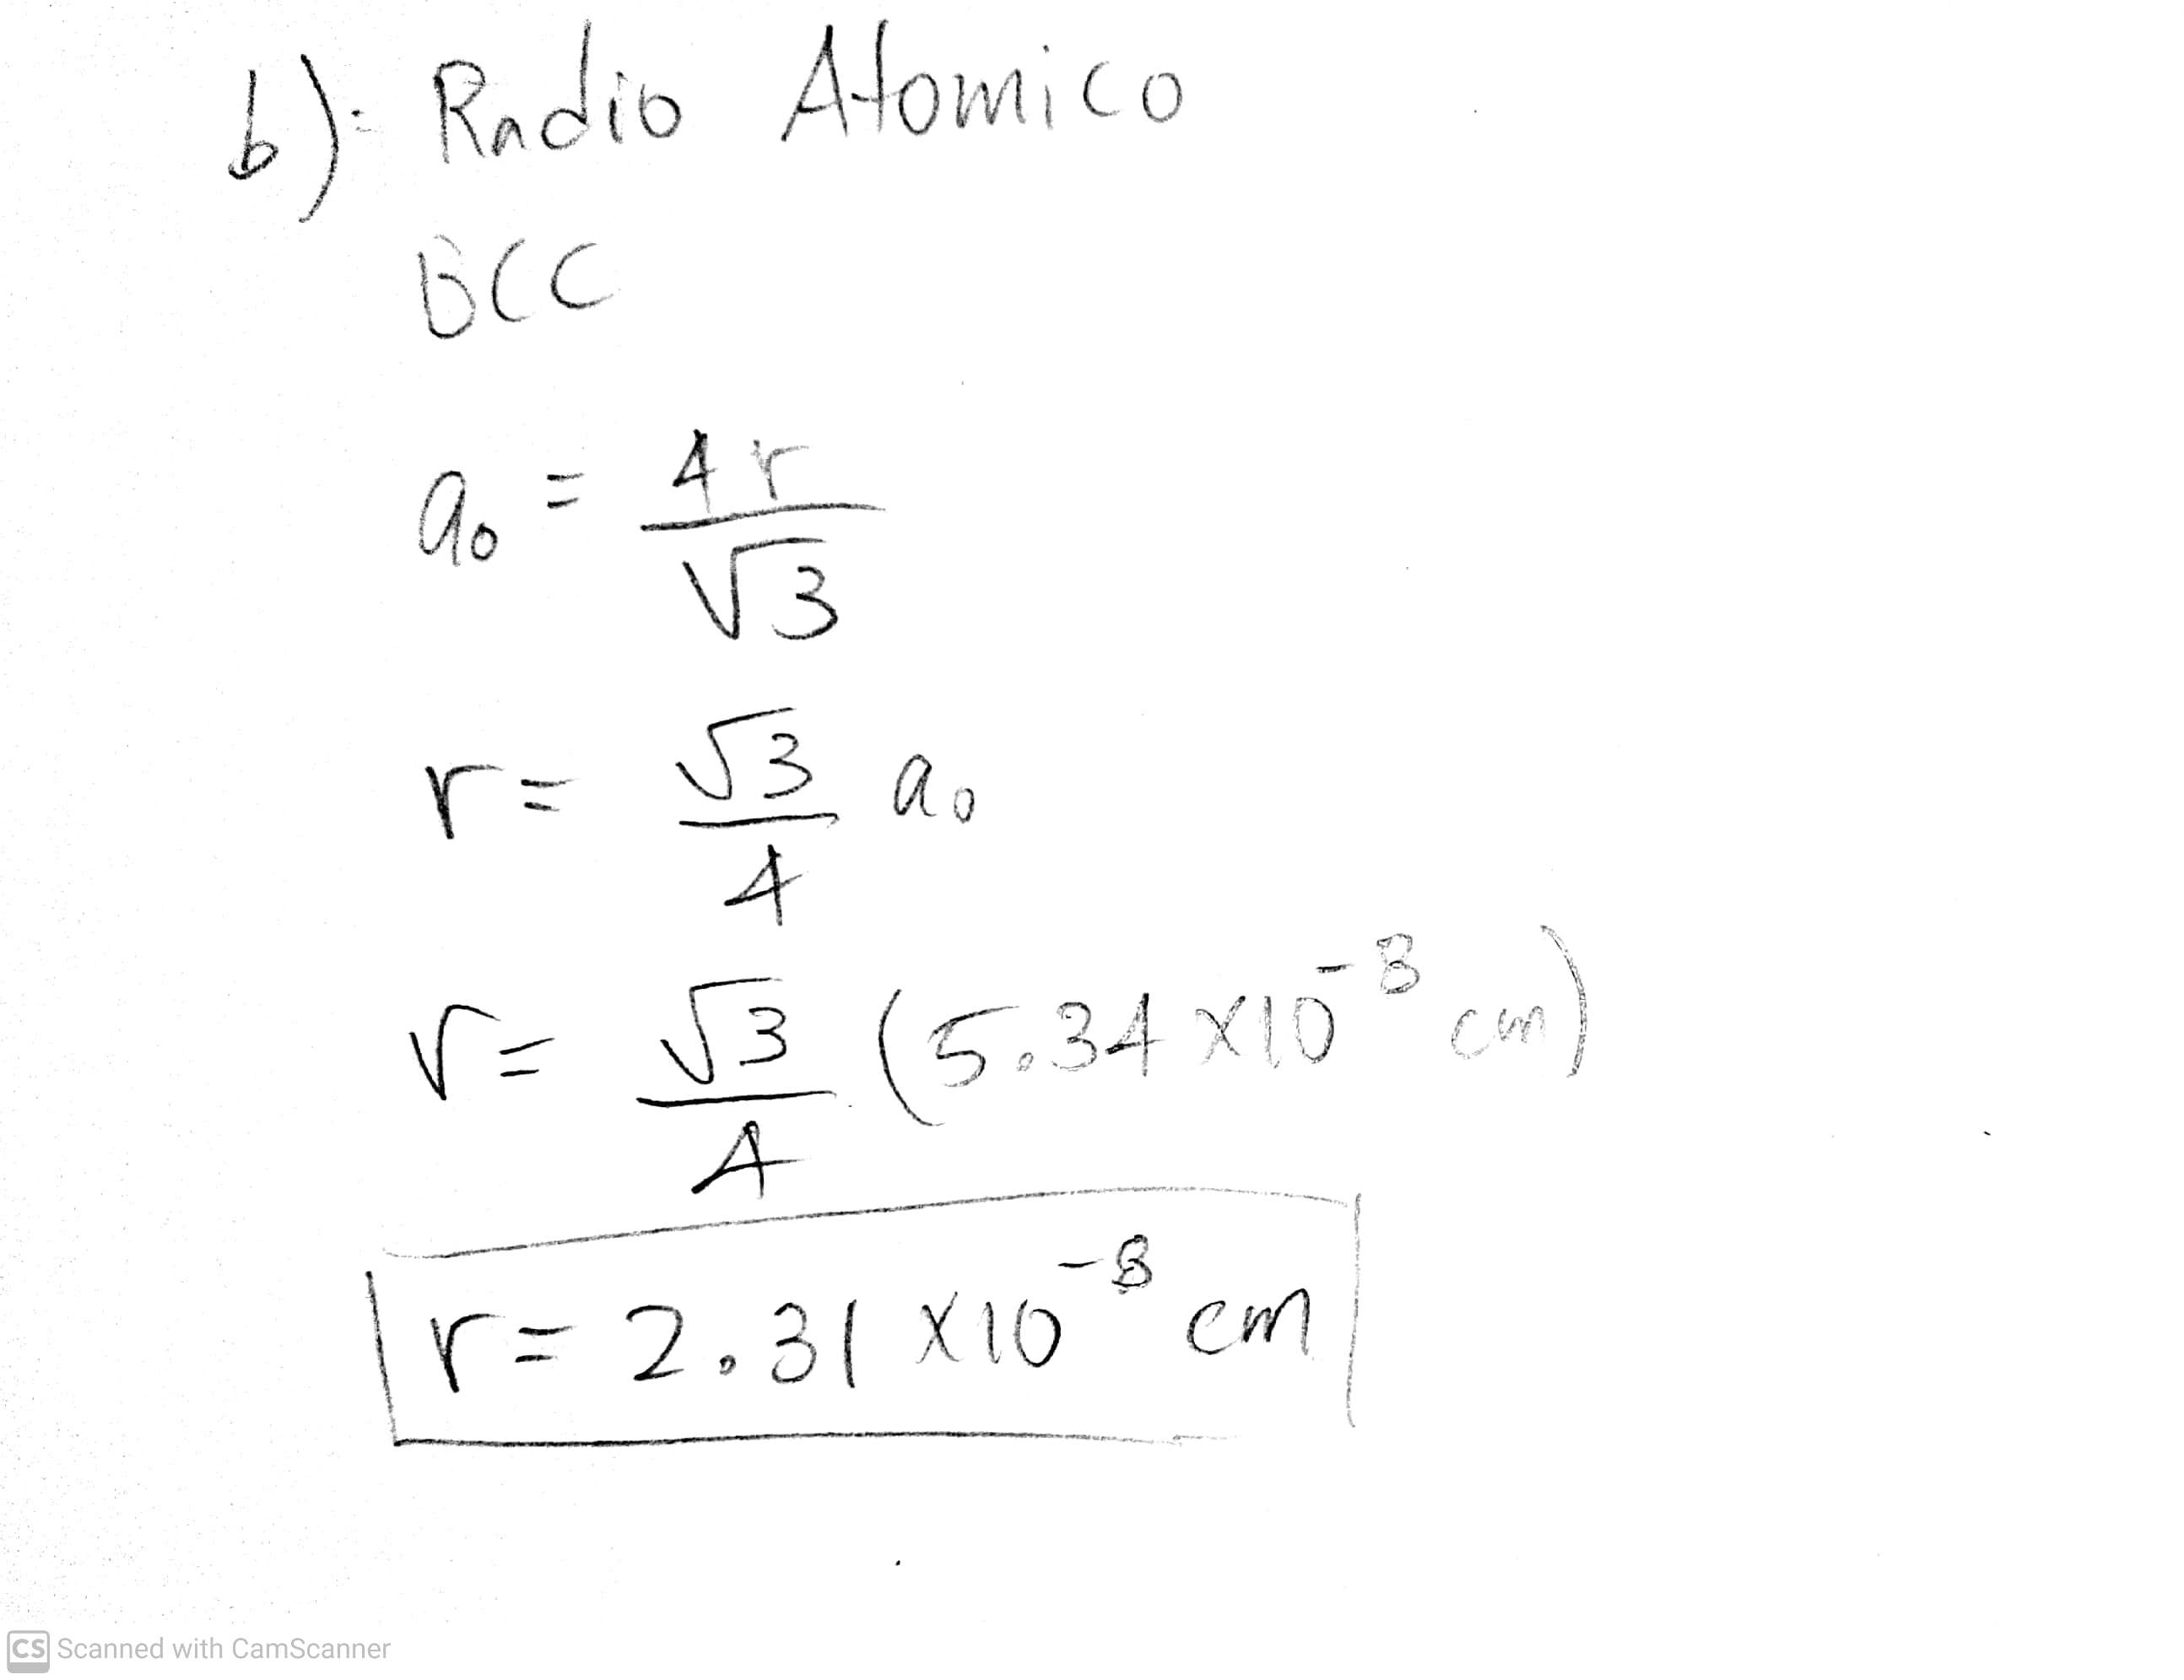 b): Radio Atomico
BCC
a₀ = 4r / √3
r = √3 / 4 a₀
r = √3 / 4 (5.34 x10⁻⁸ cm)
r = 2.31 x10⁻⁸ cm
CS Scanned with CamScanner